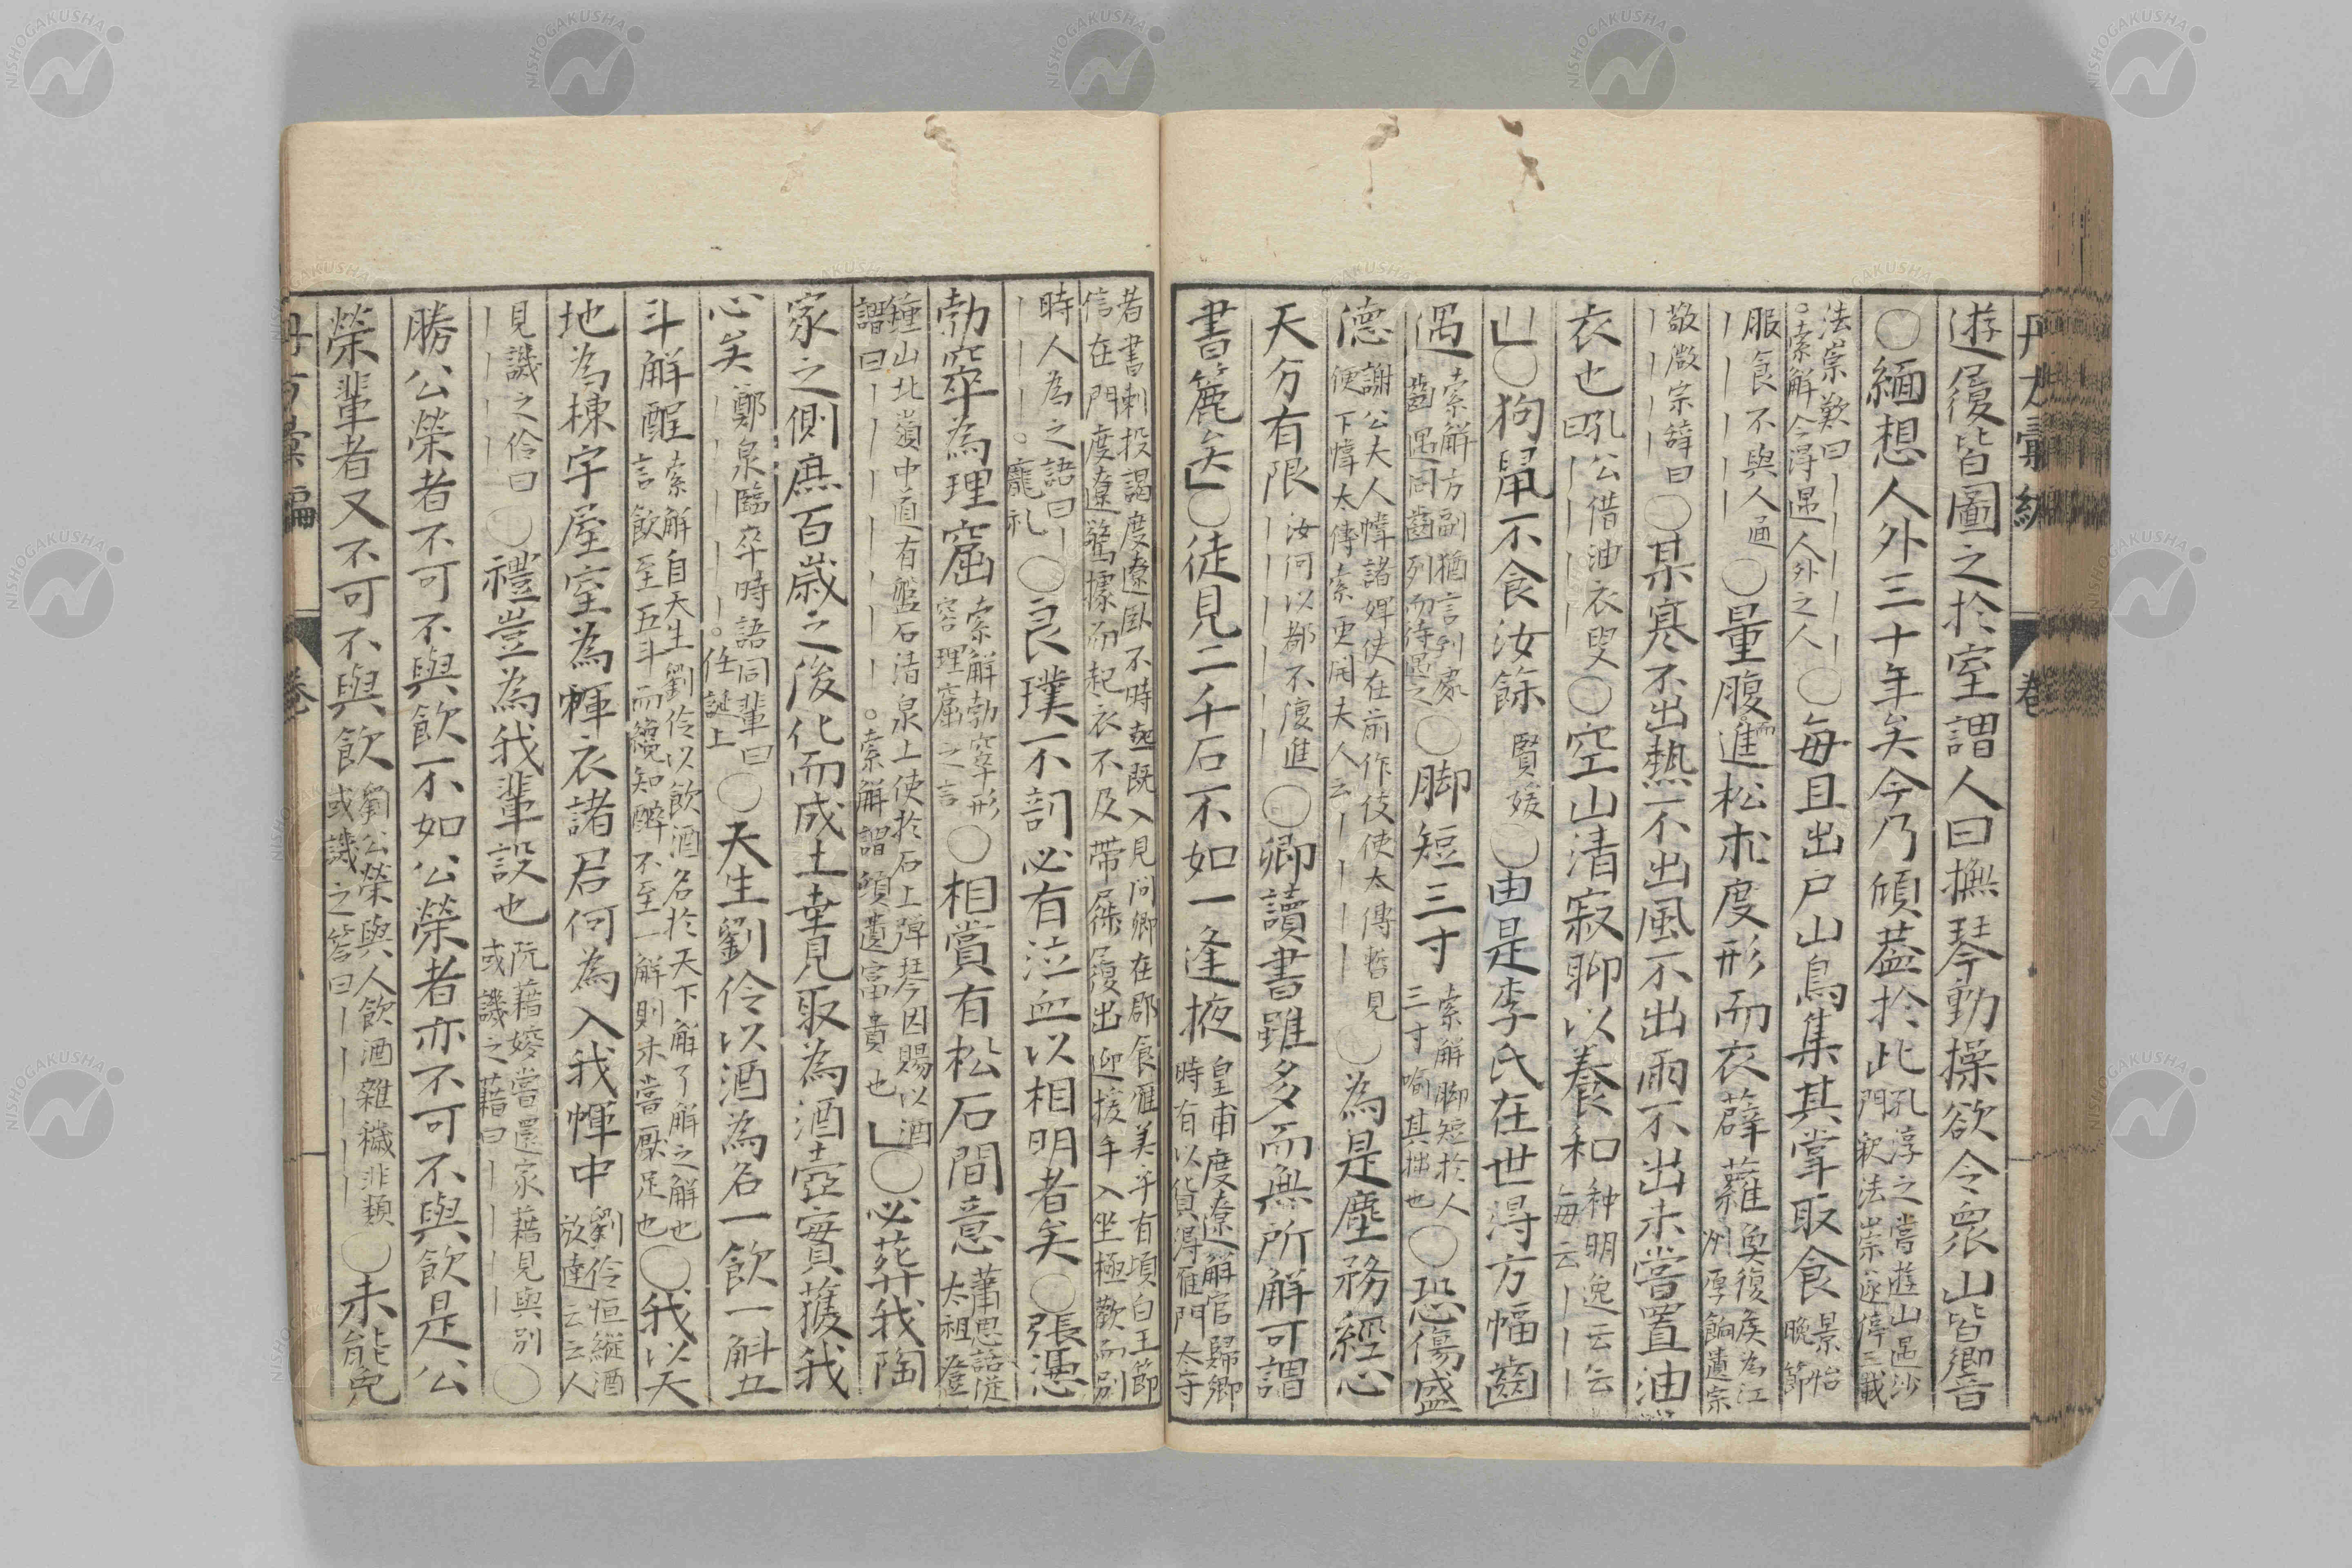 遊履皆圖之於室謂人曰撫琴動操欲令眾山皆響
〇緬想人外三十年矣今乃傾蓋於此孔淳之嘗遊山遇沙
門釈法崇遂停三載
法崇歎曰〡〡〡〡〡
。索解今得遇人外之人〇每旦出戸山鳥集其掌取食景怡
晩節
服食不與人通
〡〡〡〡〡〇量腹而進松朮度形而衣薜蘿奐復矦為江
州厚餉遺宗
敬微宗辞曰
〡〡〡〡〇某寒不出熱不出風不出雨不出未嘗置油
衣也吼公借油衣叟
曰〡〡〡〡〇空山清寂聊以養和种明逸云云
毎云〡〡〡
」〇狗鼠不食汝餘賢妓〇由是李氏在世得方幅齒
遇索解方副猶言列處
齒遇同齒列而待遇之〇脚短三寸索解脚短於人
三寸喻其拙也〇恐傷盛
德謝公大人幃諸婢使在前作伎使太傅暫見
便下幃太傅索更開夫人云〡〡〡〡〇為是塵務經心
天分有限汝何以都不復進
〡〡〡〡〡〇卿讀書雖多而無所解可謂
書簏矣」〇徒見二千石不如一逢掖皇甫度遼解官歸卿
時有以貨得雁門太守
者書刺投謁度遼臥不時起既入見問卿在郡食雁美乎有頃白王節
信在門度遼驚據而起衣不及帶屣履出迎援手入坐極歡而別
時人為之語曰〡
〡〡〡。龐札〇良璞不剖必有泣血以相明者矣〇張憑
勃窣為理窟索解勃窣形
容理窟之言〇相賞有松石間意蕭思話從
太祖登
鍾山北嶺中道有盤石清泉上使於石上彈琴因賜以酒
謂曰〡〡〡〡〡〡。索解謂頃遺富貴也」〇必葬我陶
家之側庶百歲之後化而成土幸見取為酒壺實獲我
心矣鄭泉臨卒時語同輩曰
〡〡〡〡〡〡。任誕上〇天生劉伶以酒為名一飲一斛五
斗解酲索解自天生劉伶以飲酒名於天下解了解之解也
言飲至五斗而纔知酔不至一解則未嘗厭足也〇我以天
地為棟宇屋室為褌衣諸君何為入我褌中劉伶恒縱酒
放達云云人
見譏之伶曰
〡〡〡〡〡〇禮豈為我輩設也阮藉嫂嘗還家藉見與別
或譏之藉曰〡〡〡〡〇
勝公榮者不可不與飲不如公榮者亦不可不與飲是公
榮輩者又不可不與飲劉公榮與人飲酒雜穢非類
或譏之答曰〡〡〡〡〇未能免